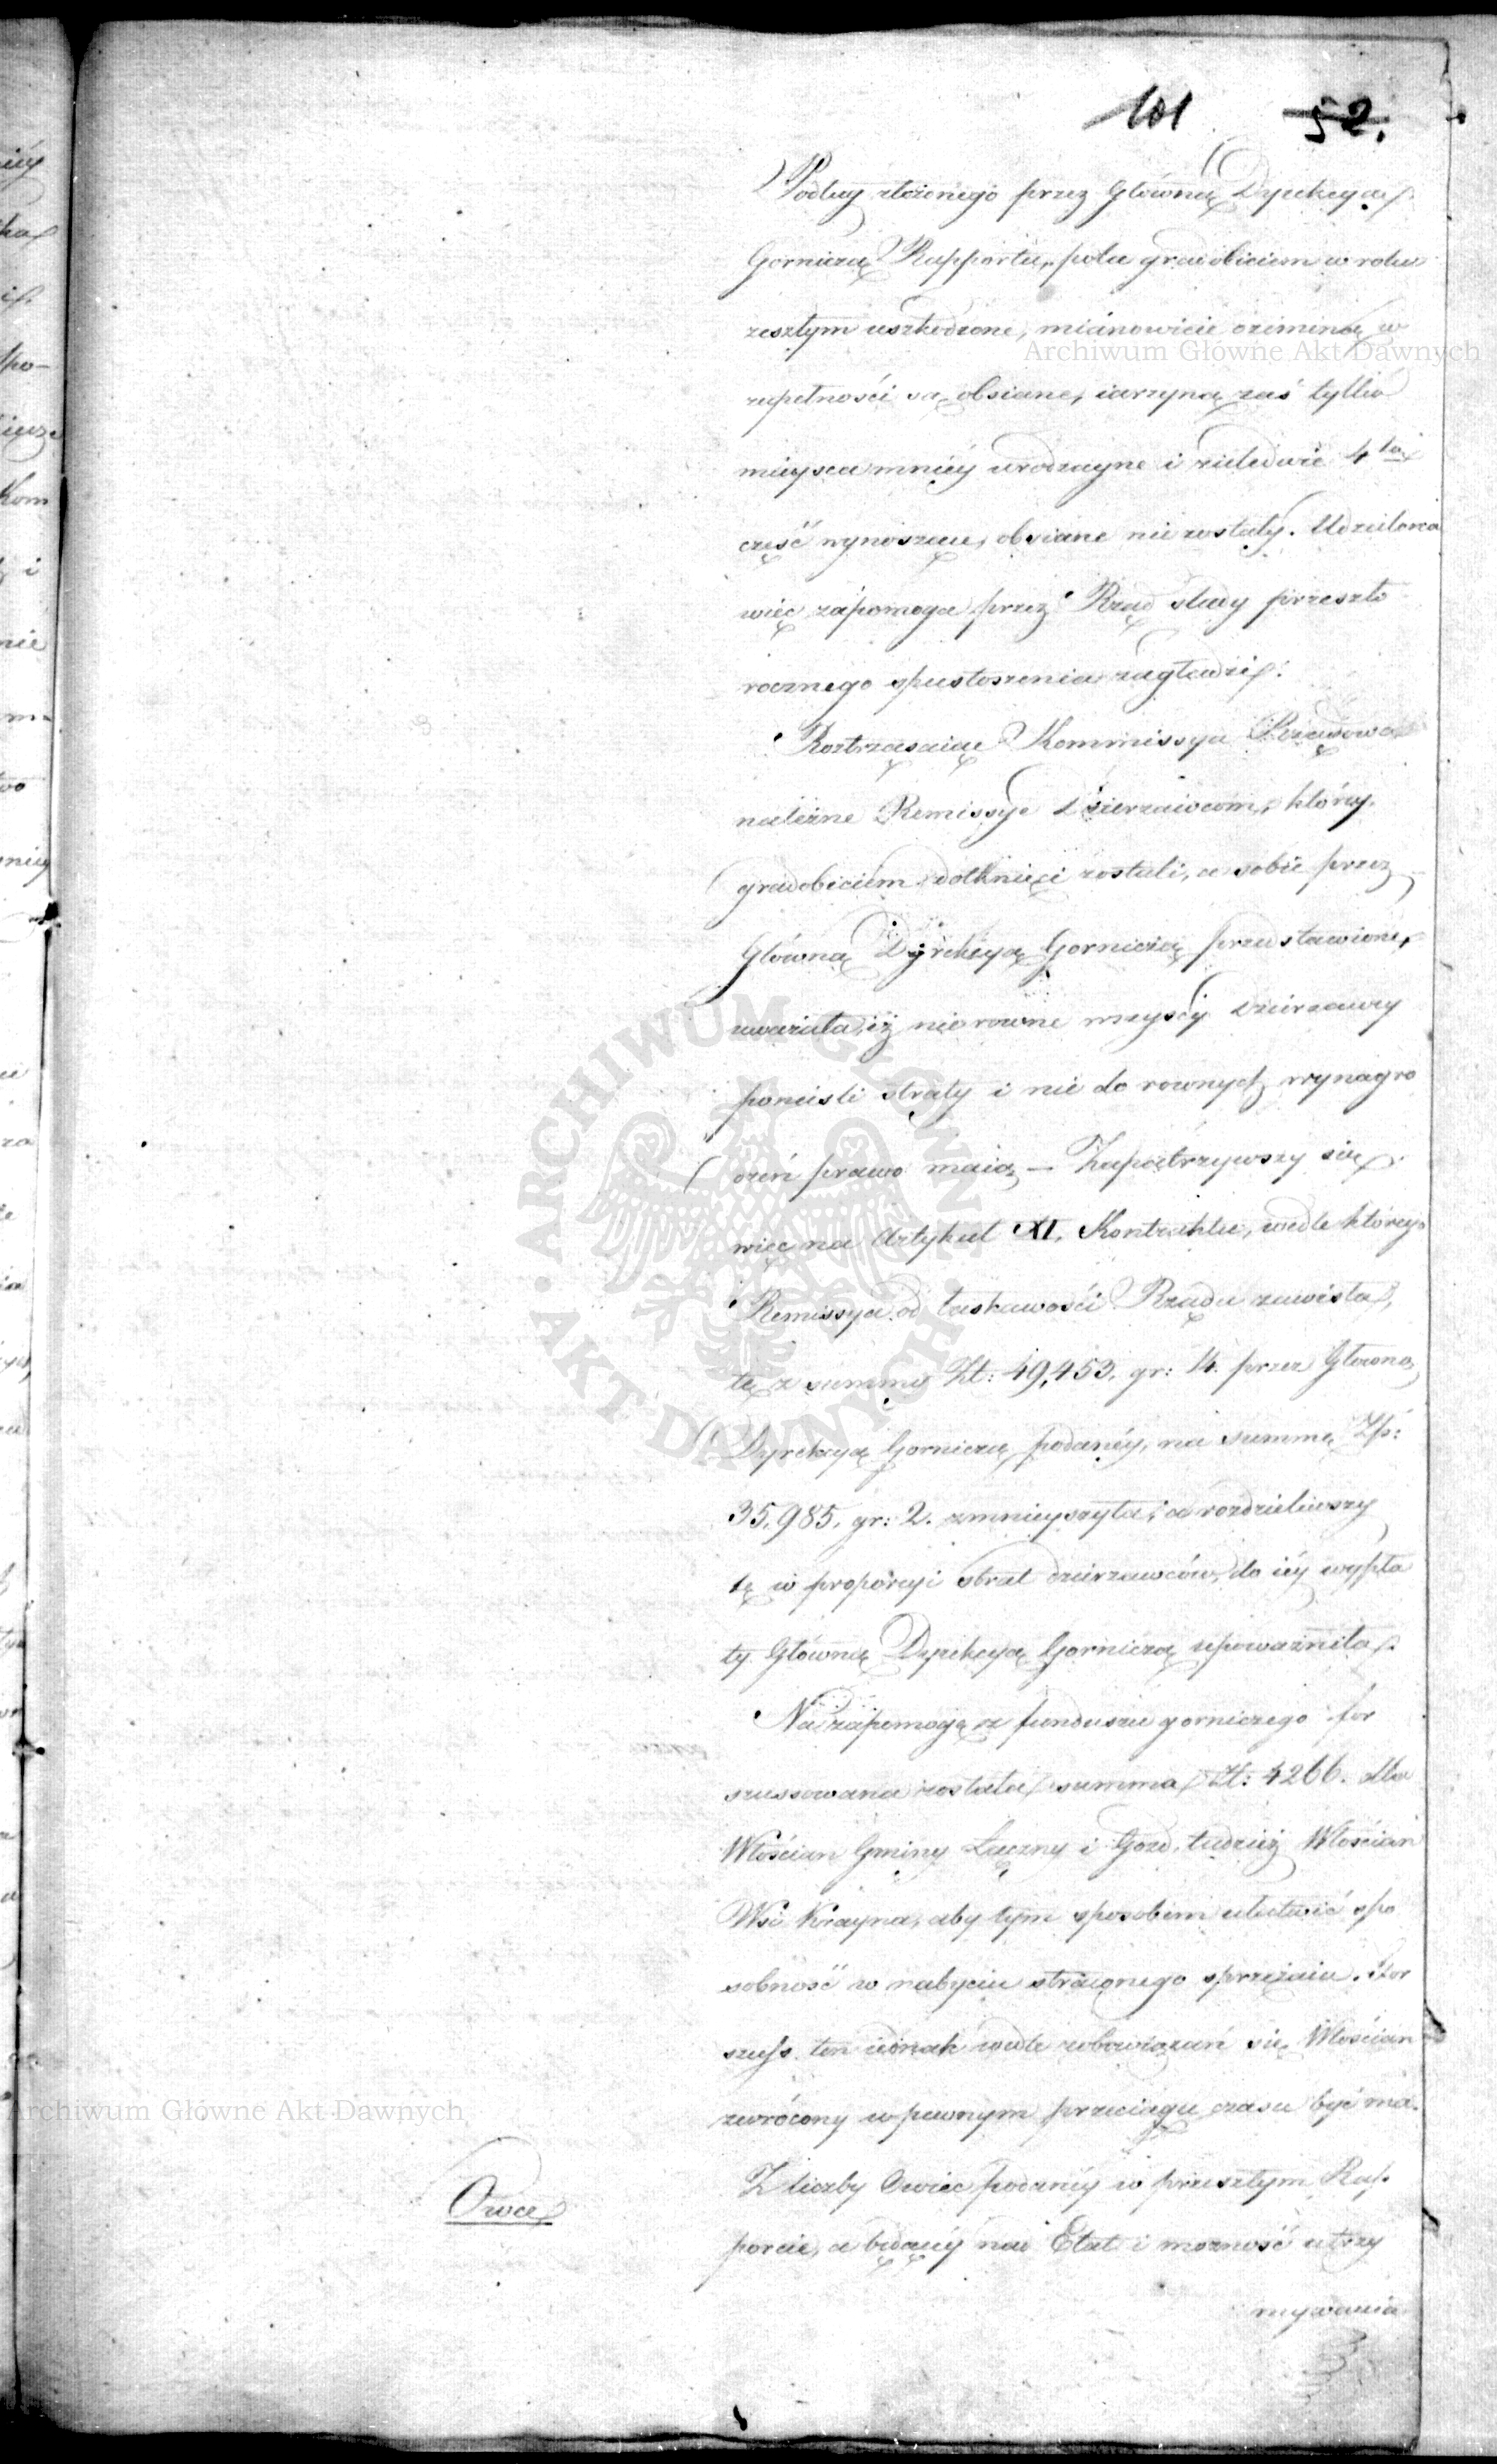 101 52.
Podług złożonego przez Główną Dyrekcyą
Gorniczą Rapportu, pola gradobiciem w roku
zeszłym uszkodzone, mianowicie oziminą w
zupełności są obsiane, iarzyną zaś tylko
mieysca mniéy urodzayne i zaledwie 4tą
część wynoszące, obsiane nie zostały. Udzielona
więc zapomoga przez Rząd ślady przeszło
rocznego spustoszenia zagładzi.
Roztrząsaiąc Kommissya Rządowa
należne Remissye Dzierzawcom, którzy
gradobiciem dotknięci zostali, a sobie przez
Główną Dyrekcyą Gorniczą przedstawione,
uważała, iż nierowne wszyscy Dzierzawcy
ponieśli straty i nie do rownych wynagro
dzeń prawo maią — Zapatrzywszy się
więc na Artykuł XI. Kontraktu, wedle którego
Remissya od łaskawości Rządu zawisła,
tę z summy Zł: 49,453. gr: 14. przez Główną
Dyrekcyą Gorniczą podanéy, na summę Złp:
35,985. gr: 2. zmnieyszyła, a rozdzieliwszy
tę w proporcyi strat dzierzawców, do iéy wypła
ty Główną Dyrekcyą Gorniczą upoważniła.
Na zapomogę z funduszu gorniczego for
szussowana została summa Zł: 4266. dla
Włościan Gminy Łączny i Gozd, tudzież Włościan
Wsi Krayna, aby tym sposobem ułatwić spo
sobność w nabyciu straconego sprzężaiu. For
szuss ten iednak wedle zobowiązań się Włościan
zwrócony w pewnym przeciągu czasu być ma.
Owce
Z liczby Owiec podanéy w przeszłym Rap
porcie, a będącéy nad Etat i możność utrzy
mywania
Archiwum Główne Akt Dawnych
Archiwum Główne Akt Dawnych
ARCHIWUM GŁÓWNE · AKT DAWNYCH ·